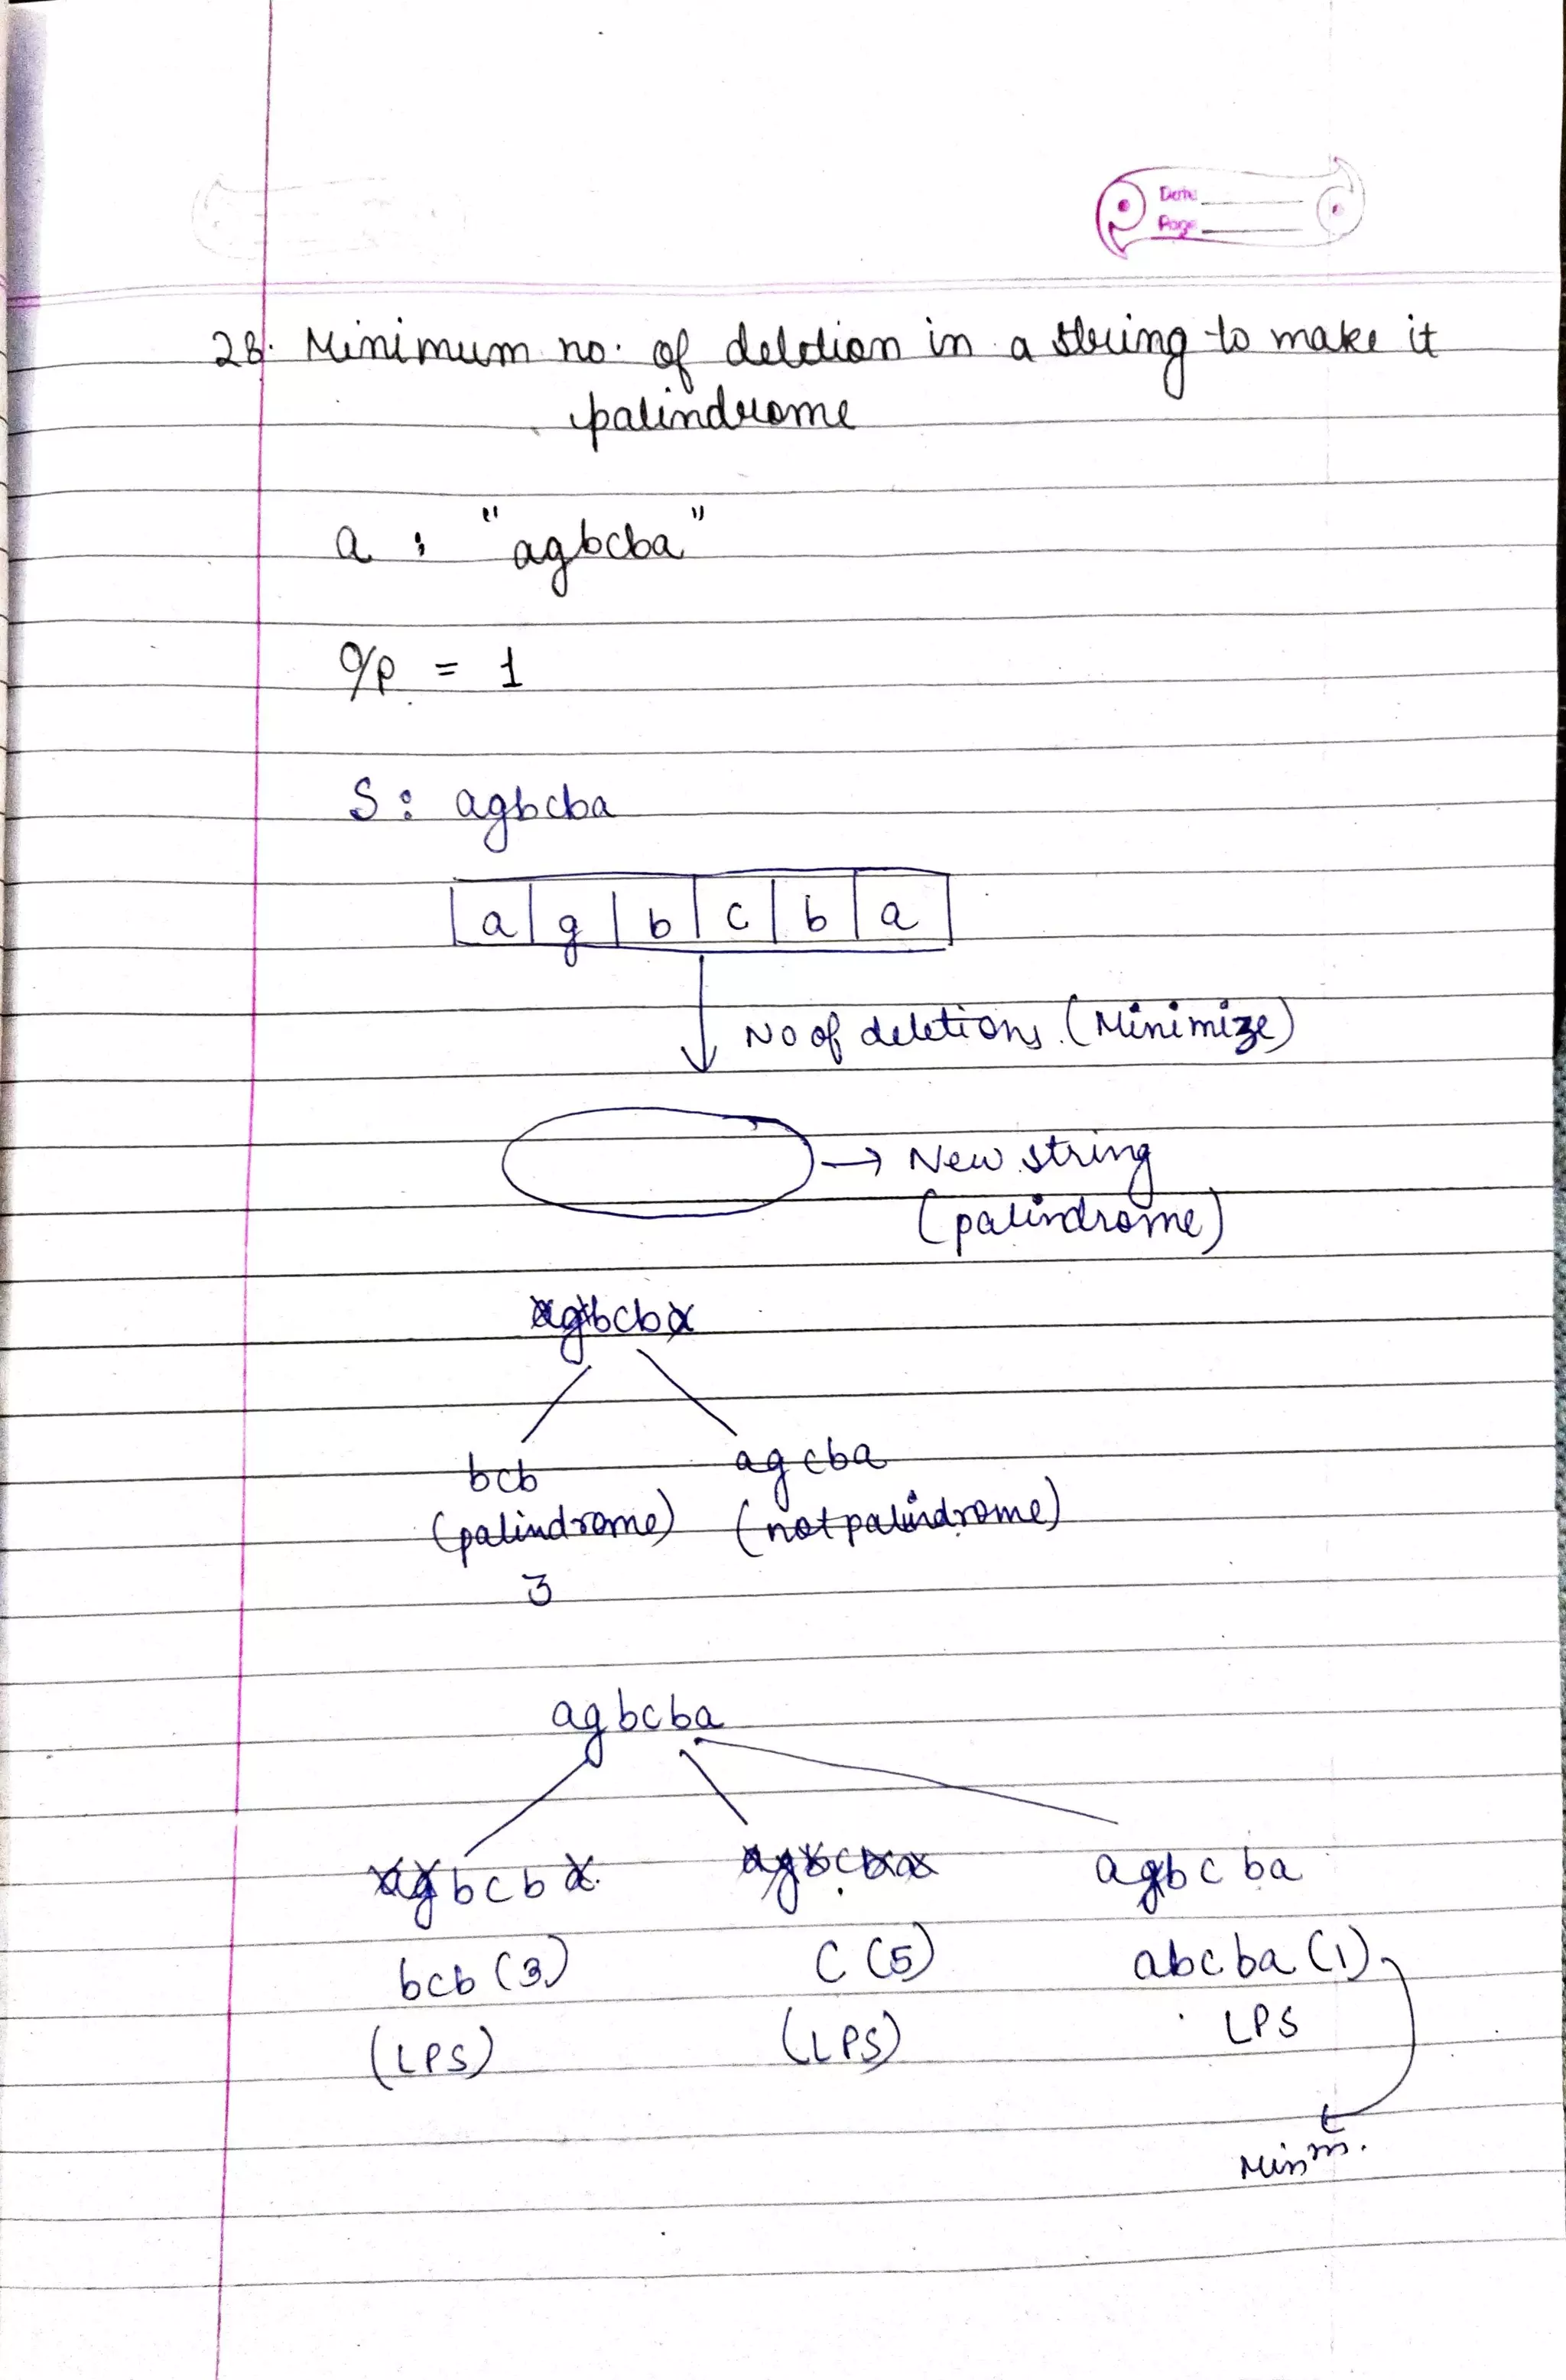 Date
Page
28. Minimum no. of deletion in a string to make it
palindrome
a : "agbcba"
O/P = 1
S: agbcba
a g b c b a
No of deletions (Minimize)
→ New string
(palindrome)
agbcba
bcb agcba
(palindrome) (not palindrome)
3
agbcba
agbcba agbcba agbcba
bcb (3) C (5) abcba (1)
(LPS) (LPS) LPS
Minm.